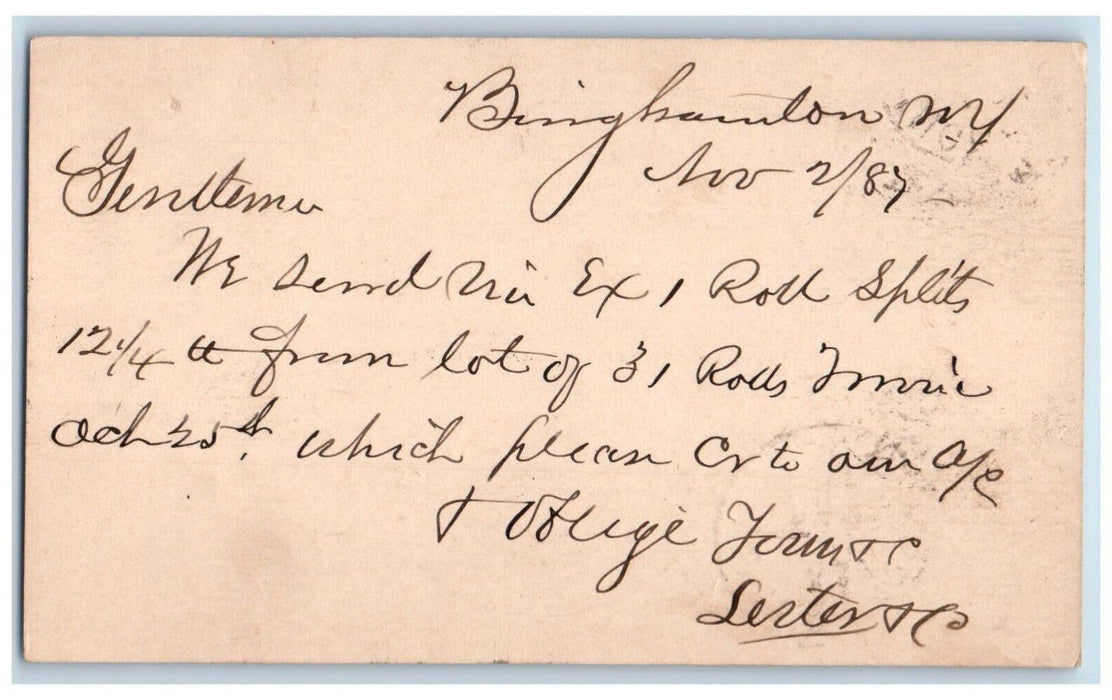 Binghamton NY
Nov 2/87
Gentlemen
We send via Ex 1 Roll Splits
12 1/4 lb from lot of 31 Rolls
Oct 25th, which please Cr to our a/c
& Oblige Yours &c
Lester & Co